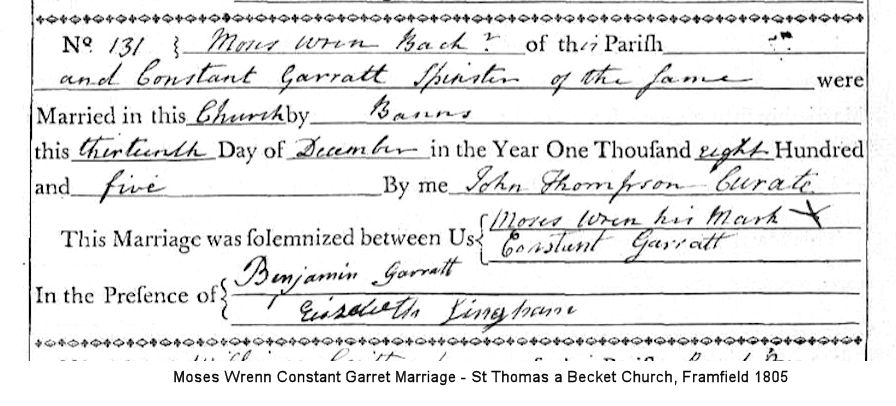 Nº 131 { Moses Wren Bachr of this Pariſh
and Constant Garratt Spinster of the same were
Married in this Church by Banns
this thirteenth Day of December in the Year One Thouſand eight Hundred
and five By me John Thompson Curate
This Marriage was ſolemnized between Us { Moses Wren his Mark X
Constant Garratt
In the Preſence of { Benjamin Garratt
Elizabeth
Moses Wrenn Constant Garret Marriage - St Thomas a Becket Church, Framfield 1805